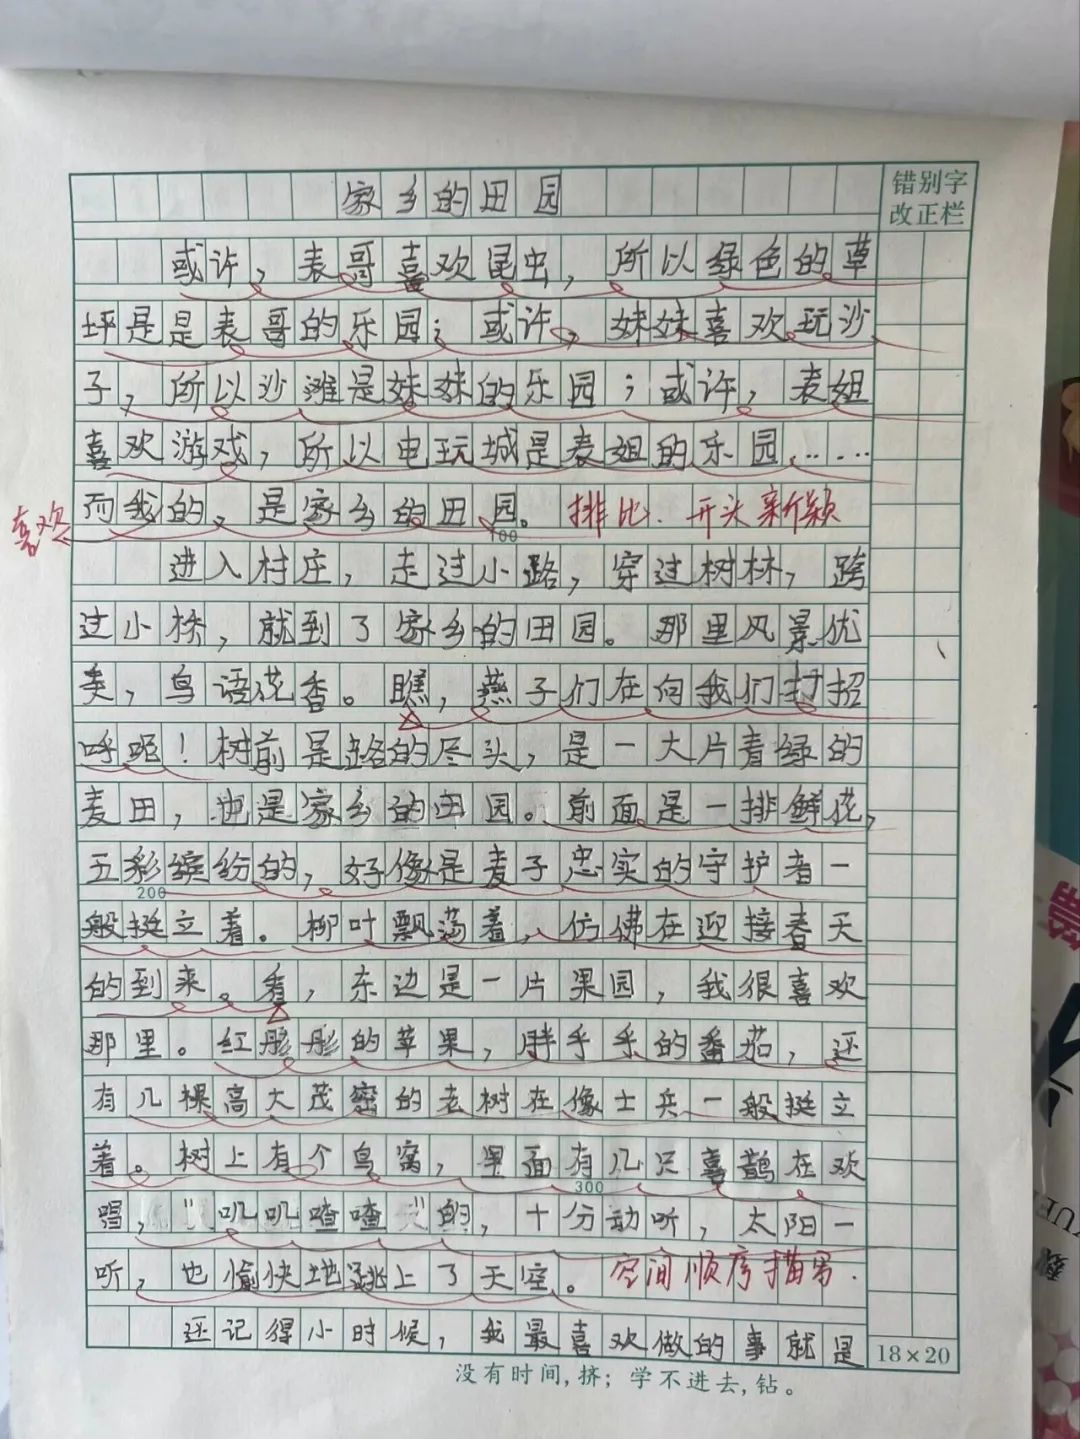 家乡的田园
错别字
改正栏
或许，表哥喜欢昆虫，所以绿色的草
坪是是表哥的乐园；或许，妹妹喜欢玩沙
子，所以沙滩是妹妹的乐园；或许，表姐
喜欢游戏，所以电玩城是表姐的乐园……
喜欢
而我的，是家乡的田园。排比．开头新颖
100
进入村庄，走过小路，穿过树林，跨
过小桥，就到了家乡的田园。那里风景优
美，鸟语花香。瞧，燕子们在向我们打招
呼呢！树前是路的尽头，是一大片青绿的
麦田，也是家乡的田园。前面是一排鲜花，
五彩缤纷的，好像是麦子忠实的守护者一
200
般挺立着。柳叶飘荡着，仿佛在迎接春天
的到来。看，东边是一片果园，我很喜欢
那里。红彤彤的苹果，胖乎乎的番茄，还
有几棵高大茂密的老树在像士兵一般挺立
着。树上有个鸟窝，里面有几只喜鹊在欢
300
唱，“叽叽喳喳”的，十分动听，太阳一
听，也愉快地跳上了天空。空间顺序描写．
还记得小时候，我最喜欢做的事就是
18×20
没有时间，挤；学不进去，钻。